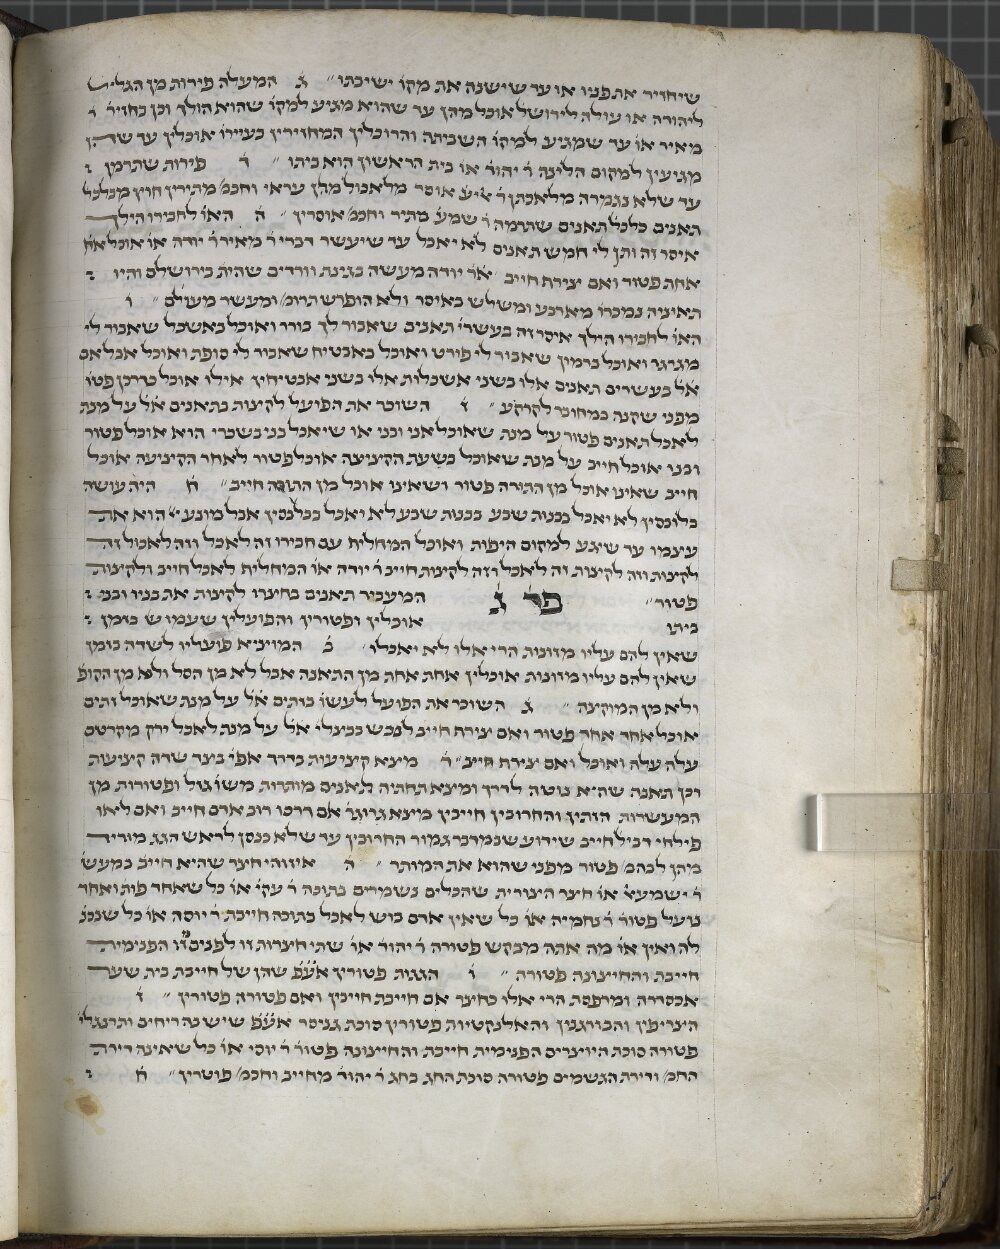 שיחזיר את פניו או עד שישנה את מקו׳ ישיבתו ״ ג המעלה פירות מן הגליל
ליהודה או עולה לירושל׳ אוכל מהן עד שהוא מגיע למקו׳ שהוא הולך וכן בחזיר׳ ר׳
מאיר או׳ עד שמגיע למקו׳ השביתה והרוכלין המחזירין בעיירו׳ אוכלין עד שהן
מגיעין למקום הלינה ר׳ יהוד׳ או׳ בית הראשון הוא ביתו ״ ד פירות שתרמן :
עד שלא נגמרה מלאכתן ר׳ אוסר מלאכול מהן עראי וחכמ׳ מתירין חוץ מכלכל
תאנים כלכל׳ תאנים שתרמה ר׳ שמע׳ מתיר וחכמ׳ אוסרין ״ ה האו׳ לחבירו הילך
איסר זה ותן לי חמש תאנים לא יאכל עד שיעשר דברי ר׳ מאיר ר׳ יודה או׳ אוכל אח׳
אחת פטור ואם צירף חייב אר׳ יודה מעשה בגינת וורדים שהית׳ בירושלם והיו :
תאיניה נמכרו׳ מארבע ומשלש באיסר ולא הופרש תרומ׳ ומעשר מעולם ״ ו
האו׳ לחבירו הילך איסר זה בעשר׳ תאנים שאבור לך בורר ואוכל באשכל שאבור לי
מגרגר ואוכל ברמון שאבור לי פורט ואוכל באבטיח שאבור לי סופת ואוכל אבל אם
א׳ל׳ בעשרים תאנים אלו בשני אשכלות אלו בשני אבטיחין אילו אוכל כדרכן פטו׳
מפני שקנה במחובר לקרקע ״ ז השוכר את הפועל לקיצות בתאנים א׳ל׳ על מנת
לאכל תאנים פטור על מנת שאוכל אני ובני או שיאכל בני בשכרי הוא אוכל פטור
ובנו אוכל חייב על מנת שאוכל בשעת הקיציעה אוכל פטור לאחר הקיציעה אוכל
חייב שאינו אוכל מן התורה פטור ושאינו אוכל מן התורה חייב ״ ח היה עושה
בלובסין לא יאכל בבנות שבע בבנות שבע לא יאכל בבלבסין אבל מונע הוא את
עיצמו עד שיגע למקום היפות ואוכל המחליף עם חבירו זה לאכל וזה לאכול זה
לקיצות וזה לקיצות זה לאכל וזה לקיצות חייב ר׳ יודה או׳ המחליף לאכל חייב ולקיצות
פטור ״ פר׳ ג׳ המעביר תאנים בחיצרו לקיצות את בניו ובני :
ביתו אוכלין ופטורין והפועלין שעמו ש בזמן :
שאין להם עליו מזונות הרי אלו לא יאכלו ״ ב המוציא פועליו לשדה בזמן
שאין להם עליו מזונות אוכלין אחת אחת מן התאנה אבל לא מן הסל ולא מן הקופ׳
ולא מן המוקיצה ״ ג השוכר את הפועל לעשו׳ בזתים א׳ל׳ על מנת שאוכל זתים
אוכל אחד אחד פטור ואם צירף חייב לנכש בבצלי׳ א׳ל׳ על מנת לאכל ירק מקרטם
עלה עלה ואוכל ואם צירף חייב ״ ד מיצא קיציעות בדרך אפי׳ בצד שדה קיציעות
וכן תאנה שהיא נוטה לדרך ומיצא תחתיה תאנים מותרות משו׳ גזל ופטורות מן
המעשרות הזתין והחרובין חייבין מיצא גריגר׳ אם דרכו רוב אדם חייב ואם לאו
פילחי דביל׳ חייב שידוע שבמדבר גמור החרובין עד שלא כנסן לראש הגג מוריד
מיהן לבהמ׳ פטור מפני שהוא את המותר ״ ה איזוהי חיצר שהיא חייב׳ במעש׳
ר׳ ישמעא׳ או׳ חיצר הצורית שהכלים נשמרים בתוכה ר׳ עקי׳ או׳ כל שאחד פות׳ ואחד
נועל פטור׳ ר׳ נחמיה או׳ כל שאין אדם בוש לאכל בתוכה חייבת ר׳ יוסה או׳ כל שנכנ׳
לה ואין או׳ מה אתה מבקש פטורה ר׳ יהוד׳ או׳ שתי חיצרות זו לפנים מזו הפנימית
חייבת והחיצונה פטורה ״ ו הגגות פטורין אע׳פ שהן של חייבת בית שער
אכסדרה ומרפסת הרי אלו כחיצר אם חייבת חייבין ואם פטורה פטורין ״ ז
הצריפין והבורגנין והאלנקטיות פטורין סוכת גניסר אע׳פ שיש בה ריחים ותרנגלי׳
פטורה סוכת היוצרים הפנימית חייבת והחיצונה פטור׳ ר׳ יוסי או׳ כל שאינה דירת
החמ׳ ודירת הגשמים פטורה סוכת החג בחג ר׳ יהוד׳ מחייב וחכמ׳ פוטרין ״ ח :